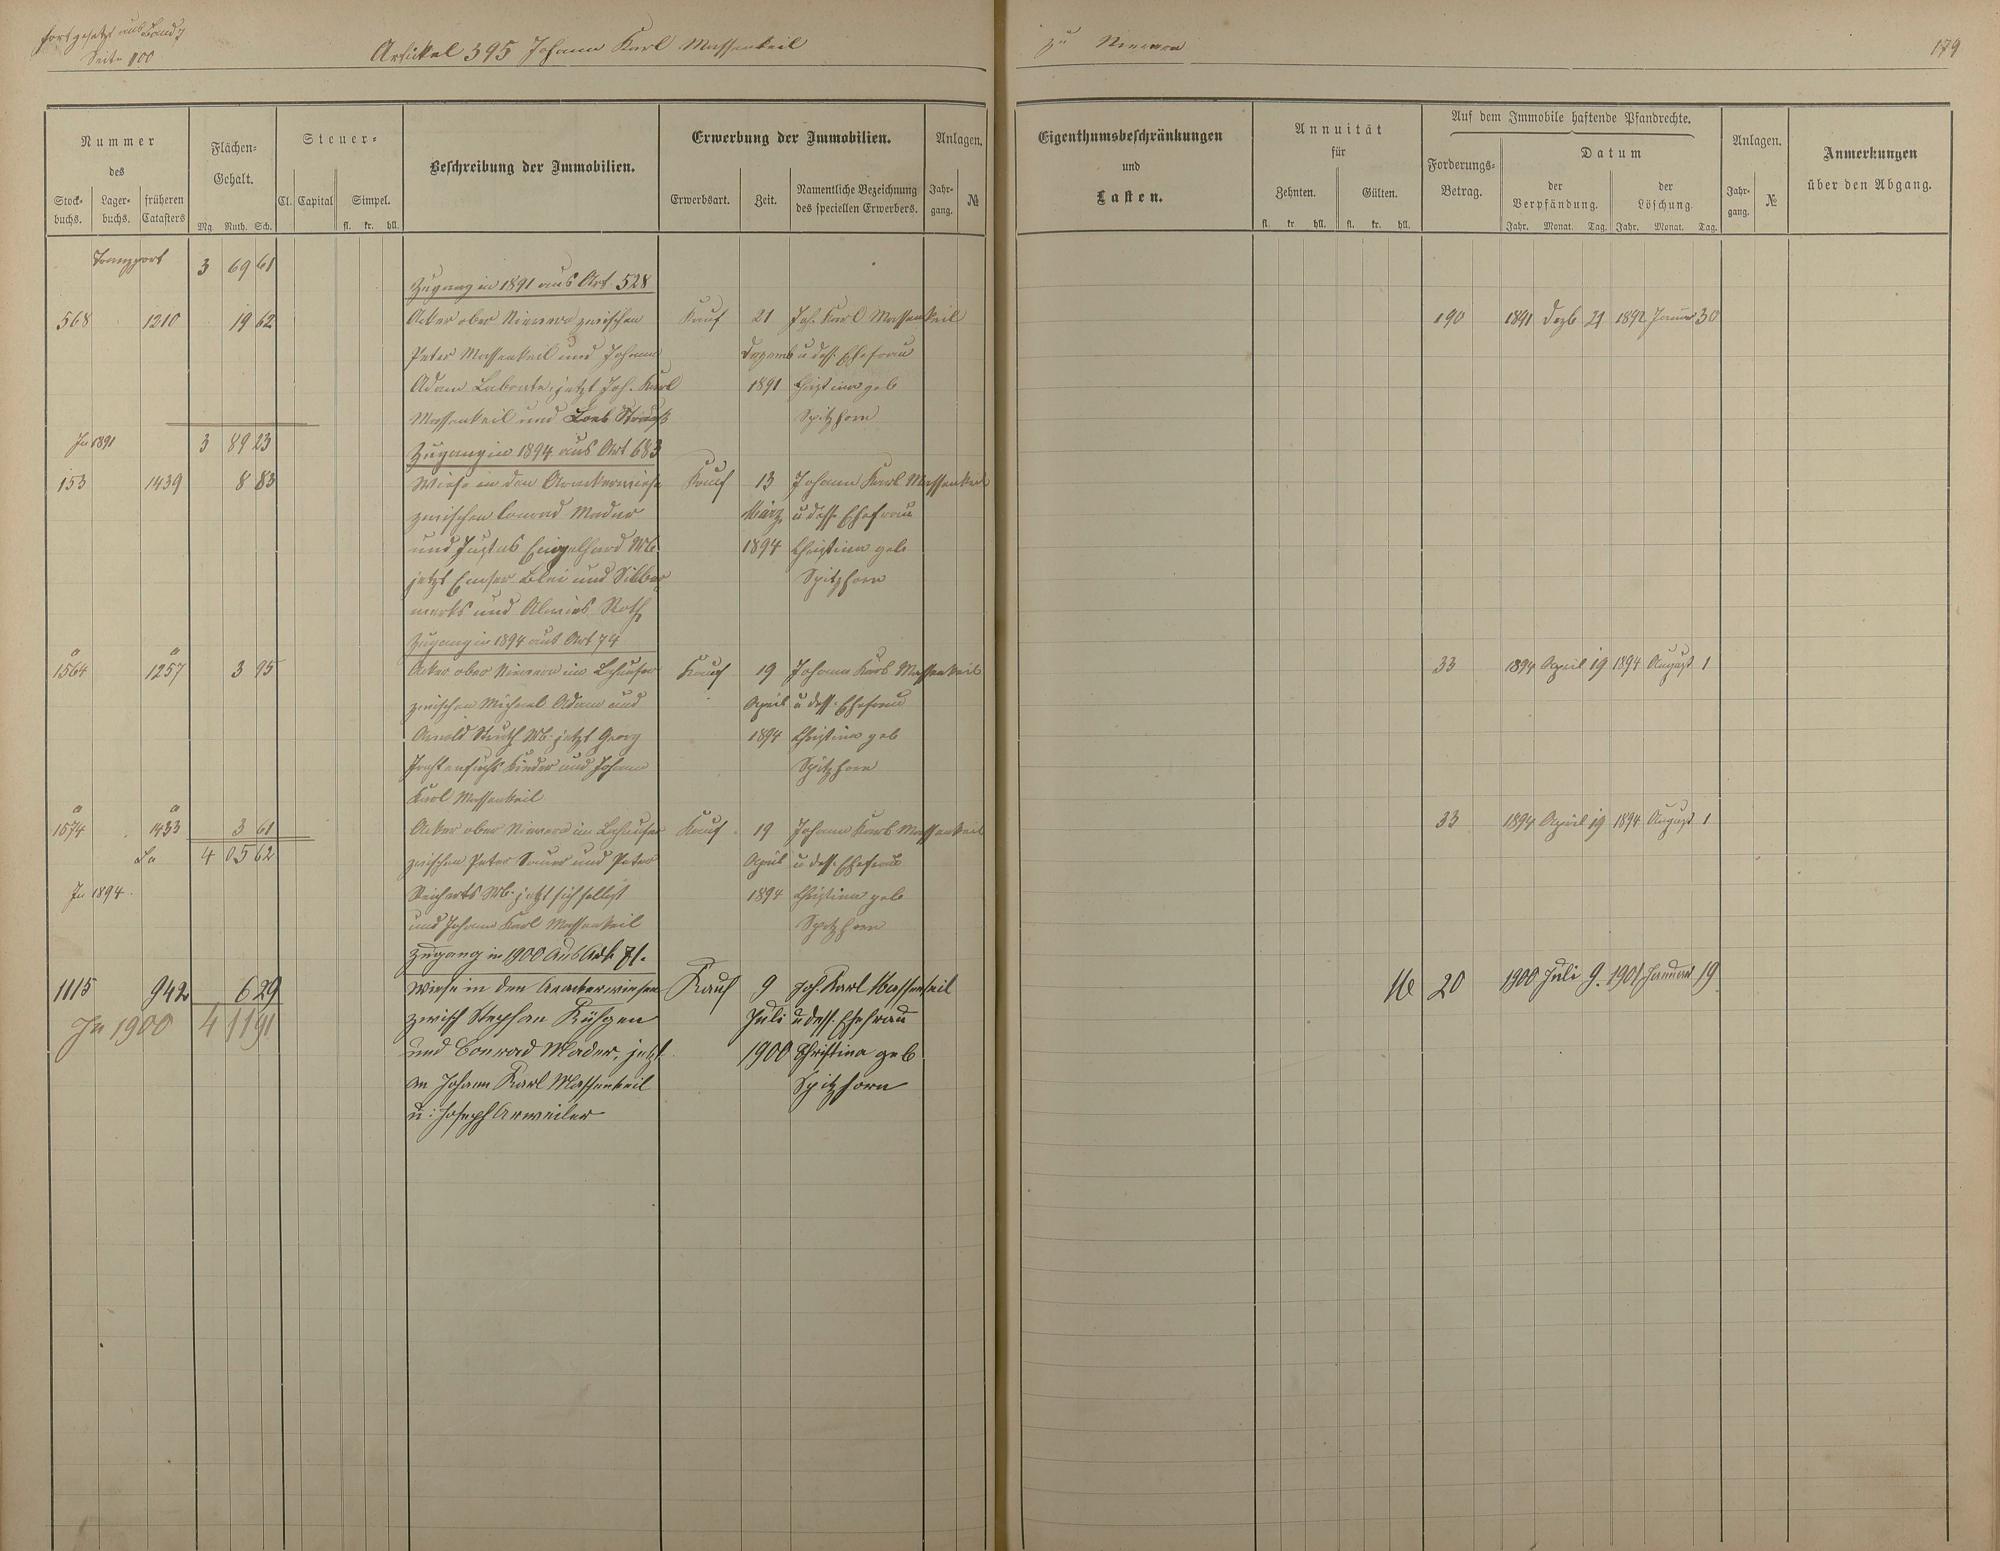 fortgesetzt aus Band 7
Seite 100
Artikel 395 Johann Karl Massenkeil
zu Nievern
179
Nummer
des
Stock-buchs. Lager-buchs. früheren Catasters
Flächen-Gehalt.
Mg. Ruth. Sch.
Steuer-
Cl. Capital Simpel.
fl. kr. hll.
Beschreibung der Immobilien.
Erwerbung der Immobilien.
Erwerbsart. Zeit. Namentliche Bezeichnung des speciellen Erwerbers.
Anlagen.
Jahr-gang. №
Eigenthumsbeschränkungen
und
Lasten.
Annuität
für
Zehnten. Gülten.
fl. kr. hll. fl. kr. hll.
Auf dem Immobile haftende Pfandrechte.
Forderungs-Betrag.
Datum
der Verpfändung. der Löschung.
Jahr. Monat. Tag. Jahr. Monat. Tag.
Anlagen.
Jahr-gang. №
Anmerkungen
über den Abgang.
Transport 3 69 61
Zugang in 1891 aus Art. 528
568 1210 19 62 Acker ober Nievern zwischen Kauf 21 Joh. Karl Massenkeil 190 1891 Dezb 21 1892 Januar 30
Peter Massenkeil und Johann Dezemb u dess. Ehefrau
Adam Labonte, jetzt Joh. Karl 1891 Christina geb
Massenkeil und Loeb Strauß Spitzhorn
In 1891 3 89 23
Zugang in 1894 aus Art 683
153 1439 8 83 Wiese in den Kauf 13 Johann Karl Massenkeil
zwischen Conrad Mader März u dess. Ehefrau
und Justus Engelhard Wb. 1894 Christina geb
jetzt Emser Blei und Silber Spitzhorn
werks und Roth
Zugang in 1894 aus Art 74
a a
1564 1257 3 95 Acker ober Nievern im Kauf 19 Johann Karl Massenkeil 33 1894 April 19 1894 August 1
zwischen Michael Adam und April u dess. Ehefrau
Arnold Struth Wb. jetzt Georg 1894 Christina geb
Kinder und Johann Spitzhorn
Karl Massenkeil
a a
1574 1433 3 61 Acker ober Nievern im Kauf 19 Johann Karl Massenkeil 33 1894 April 19 1894 August 1
Sa 4 05 62 zwischen Peter Sauer und Peter April u dess. Ehefrau
In 1894 Reicherts Wb. jetzt sich selbst 1894 Christina geb
und Johann Karl Massenkeil Spitzhorn
Zugang in 1900 aus Art. 71.
1115 942 6 29 Wiese in den Kauf 9 Joh. Karl Massenkeil 20 1900 Juli 9. 1901 Januar 19
In 1900 4 11 91 zwisch Stephan Juli u dess. Ehefrau
und Conrad Mader, jetzt 1900 Christina geb
an Johann Karl Massenkeil Spitzhorn
u. Joseph Arweiler